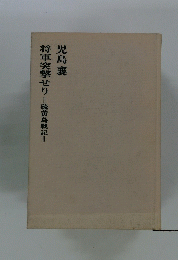 児島襄
将軍突撃せり
—硫黄島戦記—